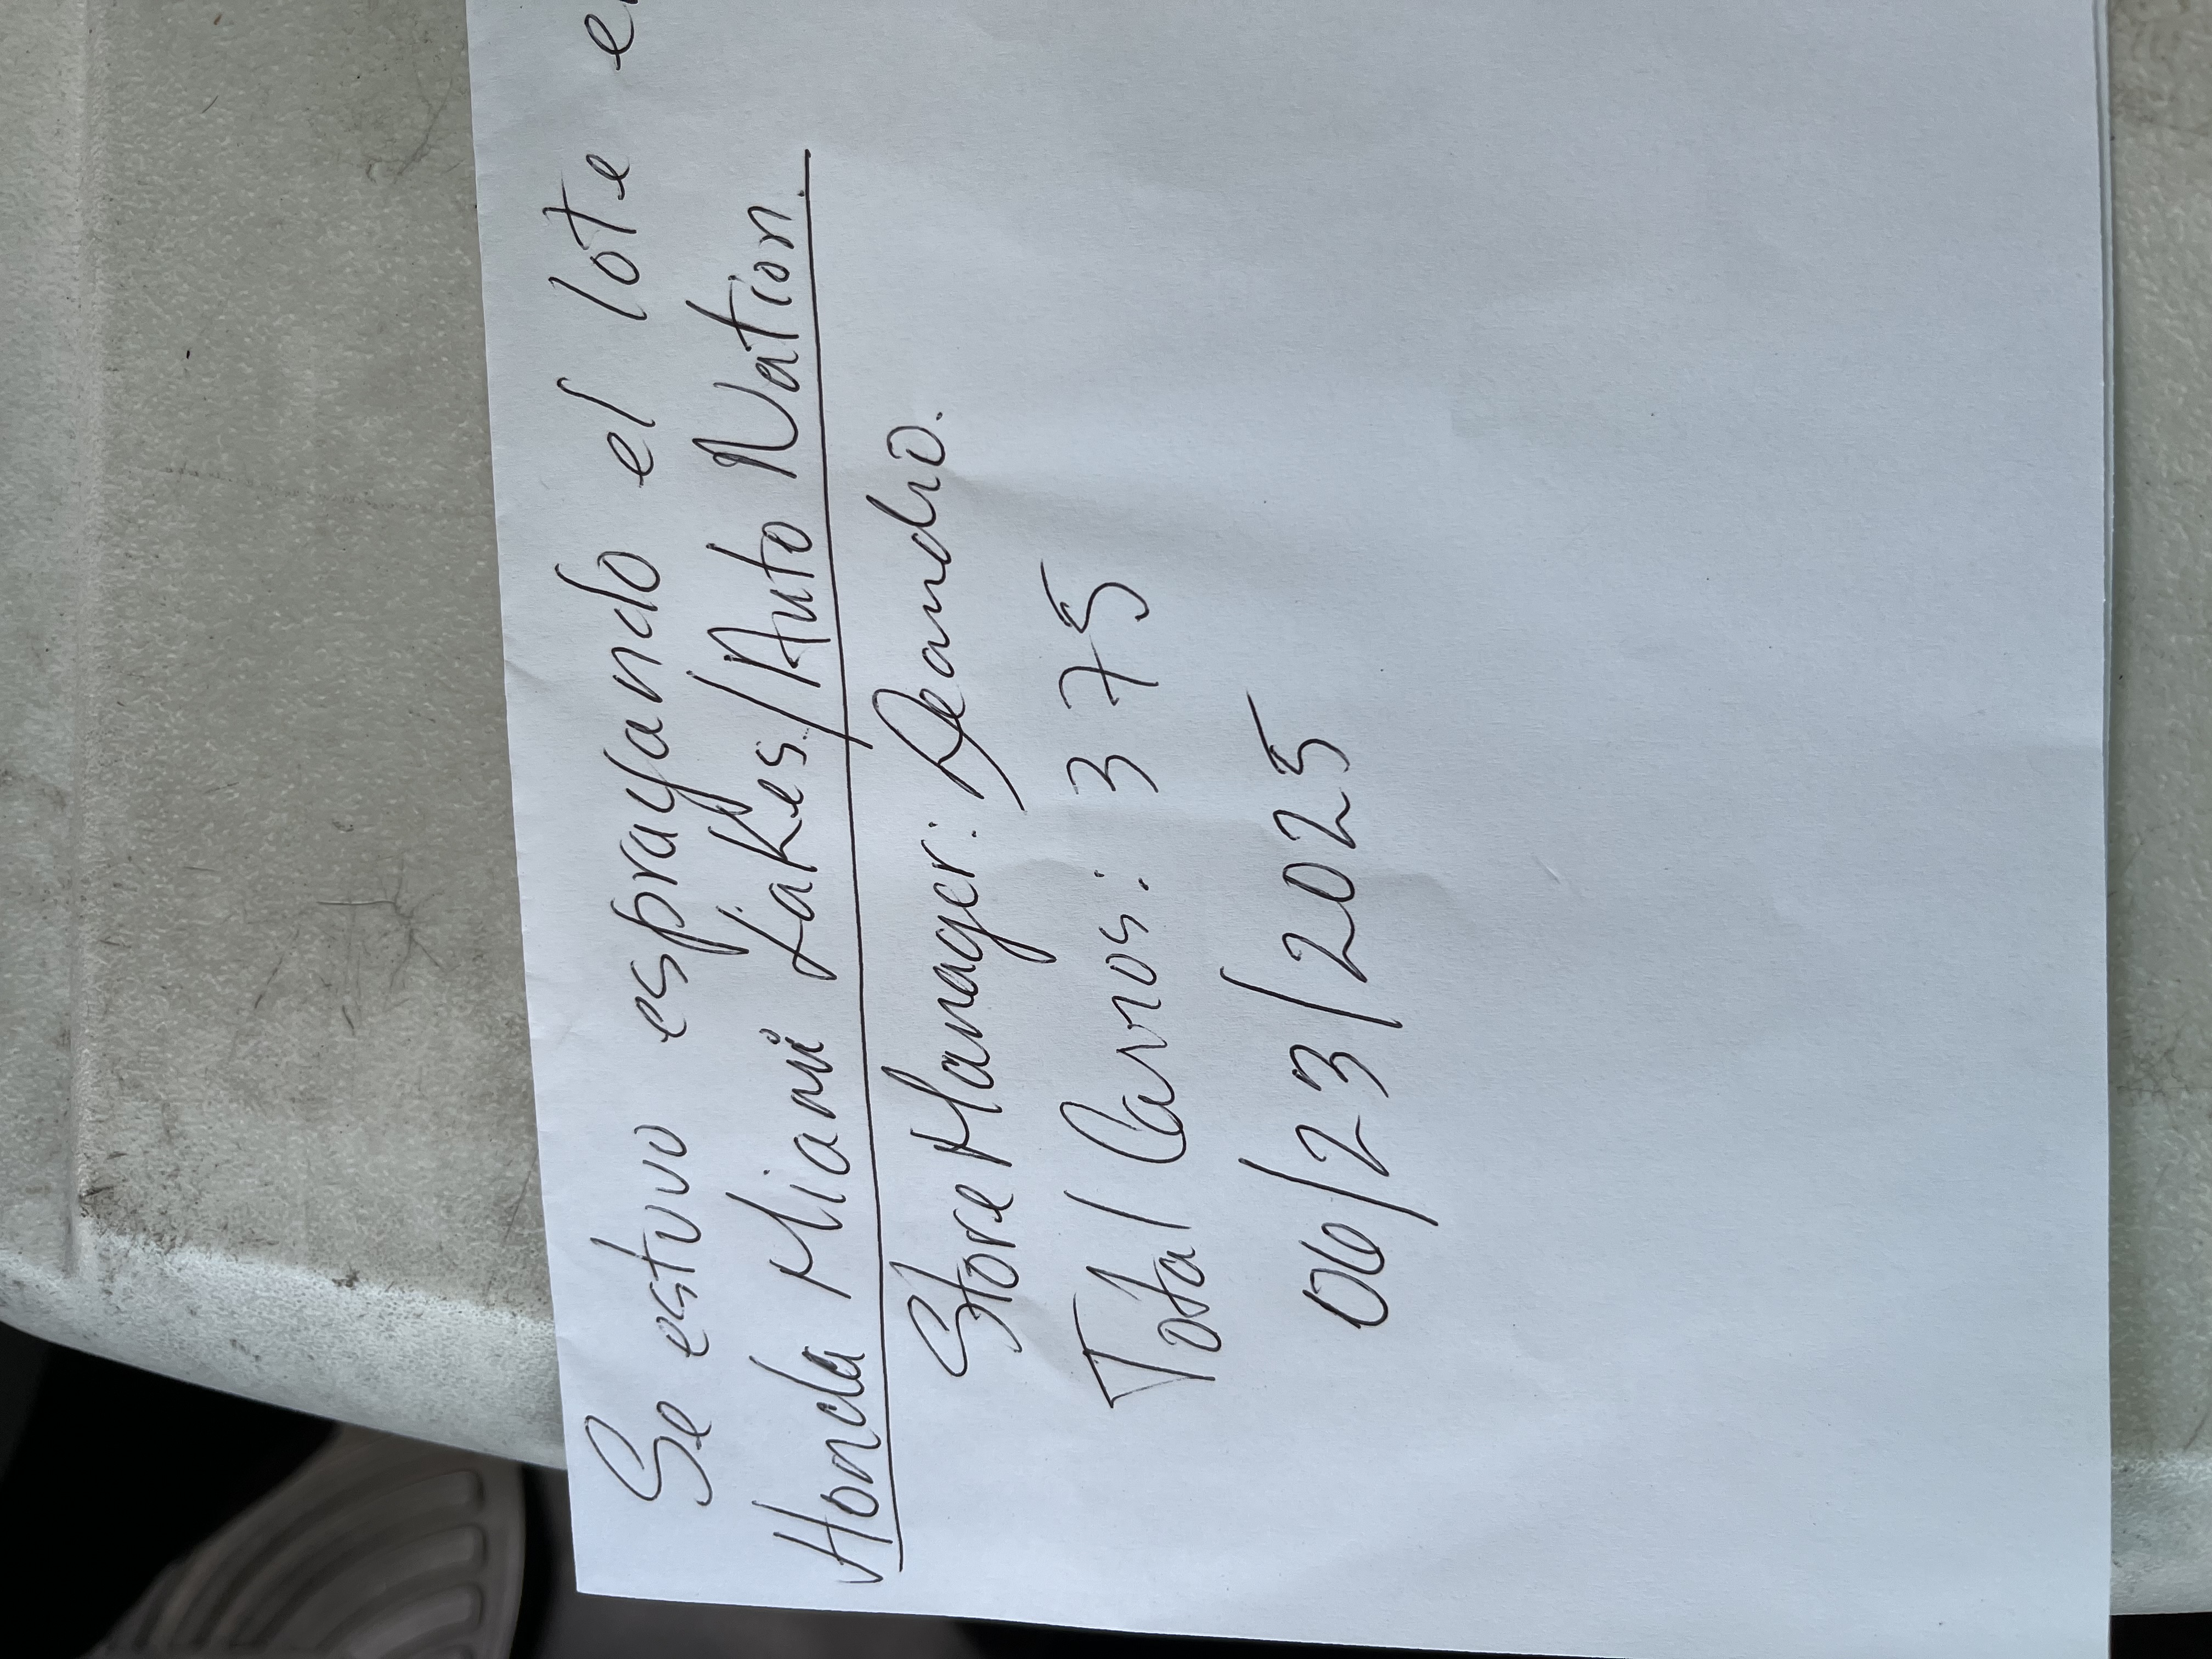 Se estuvo esprayando el lote e
Honda Miami Lakes/Auto Nation.
Store Manager: Deandro.
Total Carros: 375
06/23/2025